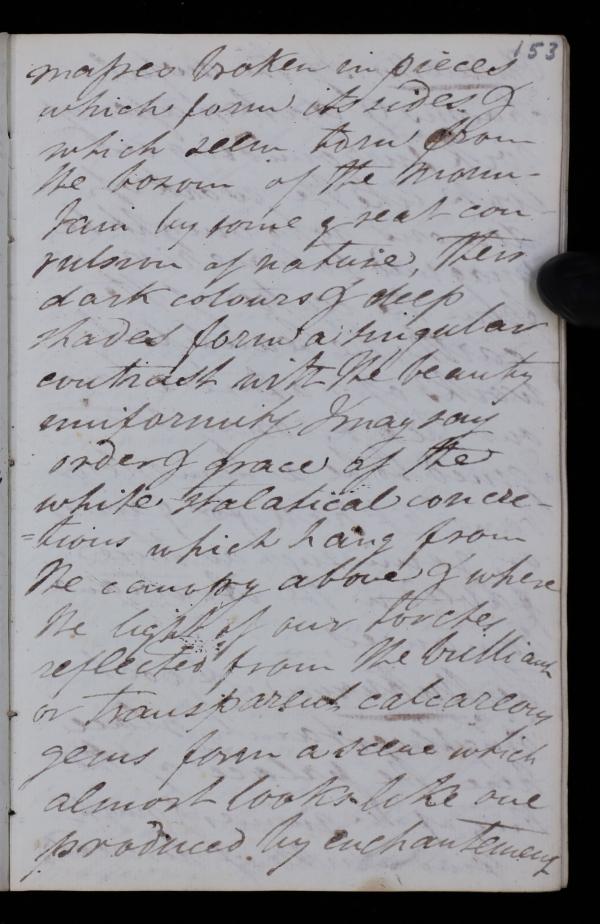 153
masses broken in pieces
which form its sides &
which seem torn from
the bosom of the moun-
tain by some great con-
vulsion of nature, Their
dark colours & deep
shades form a singular
contrast with the beauty
uniformity I may say
order & grace of the
white stalatical concre-
=tions which hang from
the canopy above & where
the light of our torches
reflected from the brilliant
or transparent calcareous
gems form a scene which
almost looks like one
produced by enchantement